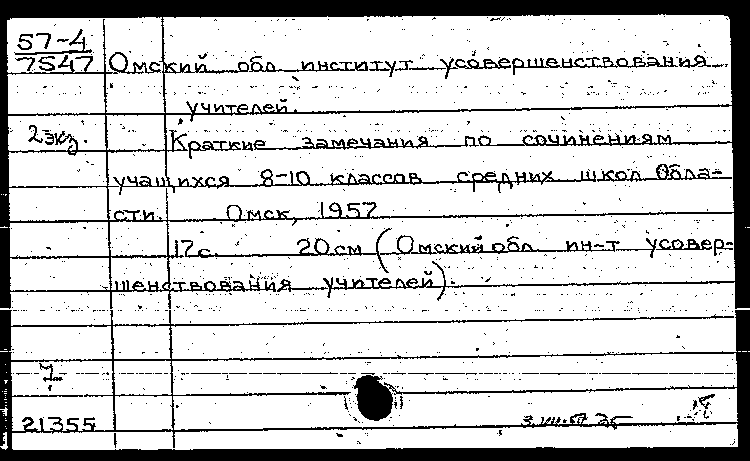 57-4
7547 Омский обл институт усовершенствования
учителей.
2 экз. Краткие замечания по сочинениям
учащихся 8-10 классов средних школ Обла-
сти. Омск, 1957
17 с. 20 см (Омский обл ин-т усовер-
шенствования учителей).
21355